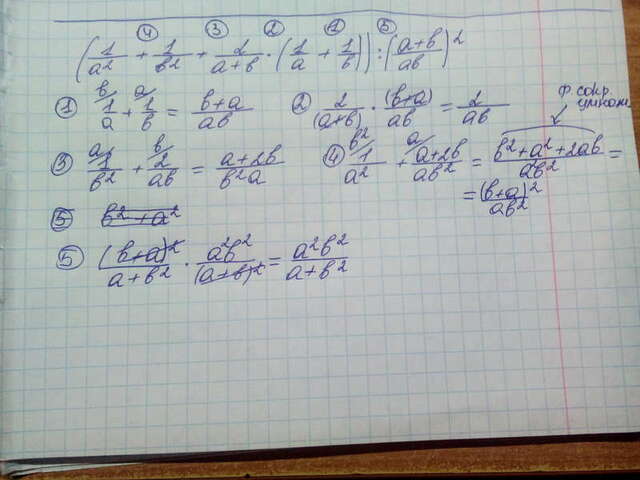 ④ ③ ② ① ⑤
(1/a² + 1/b² + 2/(a+b) · (1/a + 1/b)) : ((a+b)/ab)²
① 1/a + 1/b = (b+a)/ab ② 2/(a+b) · (b+a)/ab = 2/ab
ф. сокр. умнож.
③ 1/b² + 2/ab = (a+2b)/b²a ④ 1/a² + (a+2b)/ab² = (b²+a²+2ab)/a²b² =
= (b+a)²/ab²
⑤ b²+a²
⑤ (b+a)²/(a+b²) · a²b²/(a+b)² = a²b²/(a+b²)